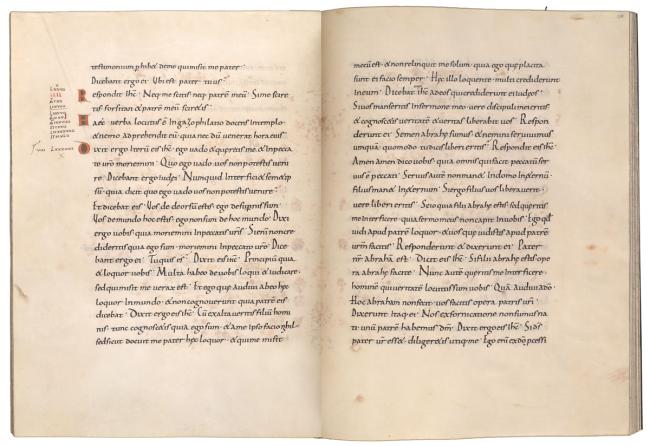 testimonium phibet deme quimisit me pater
Dicebant ergo ei Ubi est pater tuus
Respondit ihs Neq; me scitis neq; patrē meū Sime scire
tis forsitan & patrē meū sciretis
Haec verba locutus ē Ingazophilatio docens Intemplo
& nemo adprehendit eum quia nec dū venerat hora eius
Dixit ergo iterū eis ihs ego vado & queretis me & Inpecca
to vrō moriemini Quo ego vado vos nonpotestis veni
re Dicebant ergo iudei Numquid Interficiet semetip
sū quia dicit quo ego vado vos nonpotestis venire
Et dicebat eis Vos de deorsū estis ego desuprus sum
Vos demundo hoc estis ego nonsum de hoc mundo Dixi
ergo vobis quia moriemini Inpeccatis vris Sienī noncre
dideritis quia ego sum moriemini Inpeccato vrō Dice
bant ergo ei Tu quis es Dixit eis ihs Principiū quia
& loquor vobis Multa habeo devobis loqui & iudicare
sed quimisit me verax est Et ego quae audivi abeo hęc
loquor Inmundo & noncognoverunt quia patrē eis
dicebat Dixit ergo eis ihs Cū exaltaveritis filiū homi
nis tunc cognoscetis quia ego sum & ame ipso facio nihil
sed sicut docuit me pater hęc loquor & qui me misit
mecū est & nonrelinquit me solum quia ego quę placita
sunt ei facio semper Hęc illo loquente multi crediderunt
Ineum Dicebat ihs adeos quicrediderunt ei iudęos
Sivos manseritis Insermone meo vere discipuli mei eritis
& cognoscetis veritatē & veritas liberabit vos Respon
derunt ei Semen abrahę sumus & nemini servivimus
umquā quomodo tu dicis liberi eritis Respondit eis ihs
Amen amen dico vobis quia omnis quifacit peccatū ser
vus ē peccati Servus autē nonmanet Indomo Inęternū
filius manet Inęternum Siergo filius vos liberaverit
vere liberi eritis Scio quia filii abrahę estis sed queritis
me interficere quia sermo meus noncapit Invobis Ego qd
vidi apud patrē loquor & vos quę vidistis apud patrē
vrm facitis Responderunt & dixerunt ei Pater
nr abrahā est Dicit eis ihs Sifilii abrahę estis ope
ra abrahę facite Nunc autē queritis me interficere
hominē quiveritatē locutussum vobis Quā audivi adō
Hoc abraham nonfecit vos facitis opera patris vri
Dixerunt itaq; ei Nos exfornicatione nonsumus na
ti unū patrē habemus dm Dixit ergo eis ihs Si ds
pater vr esset diligeretis utiq; me Ego enī exdō pcessi